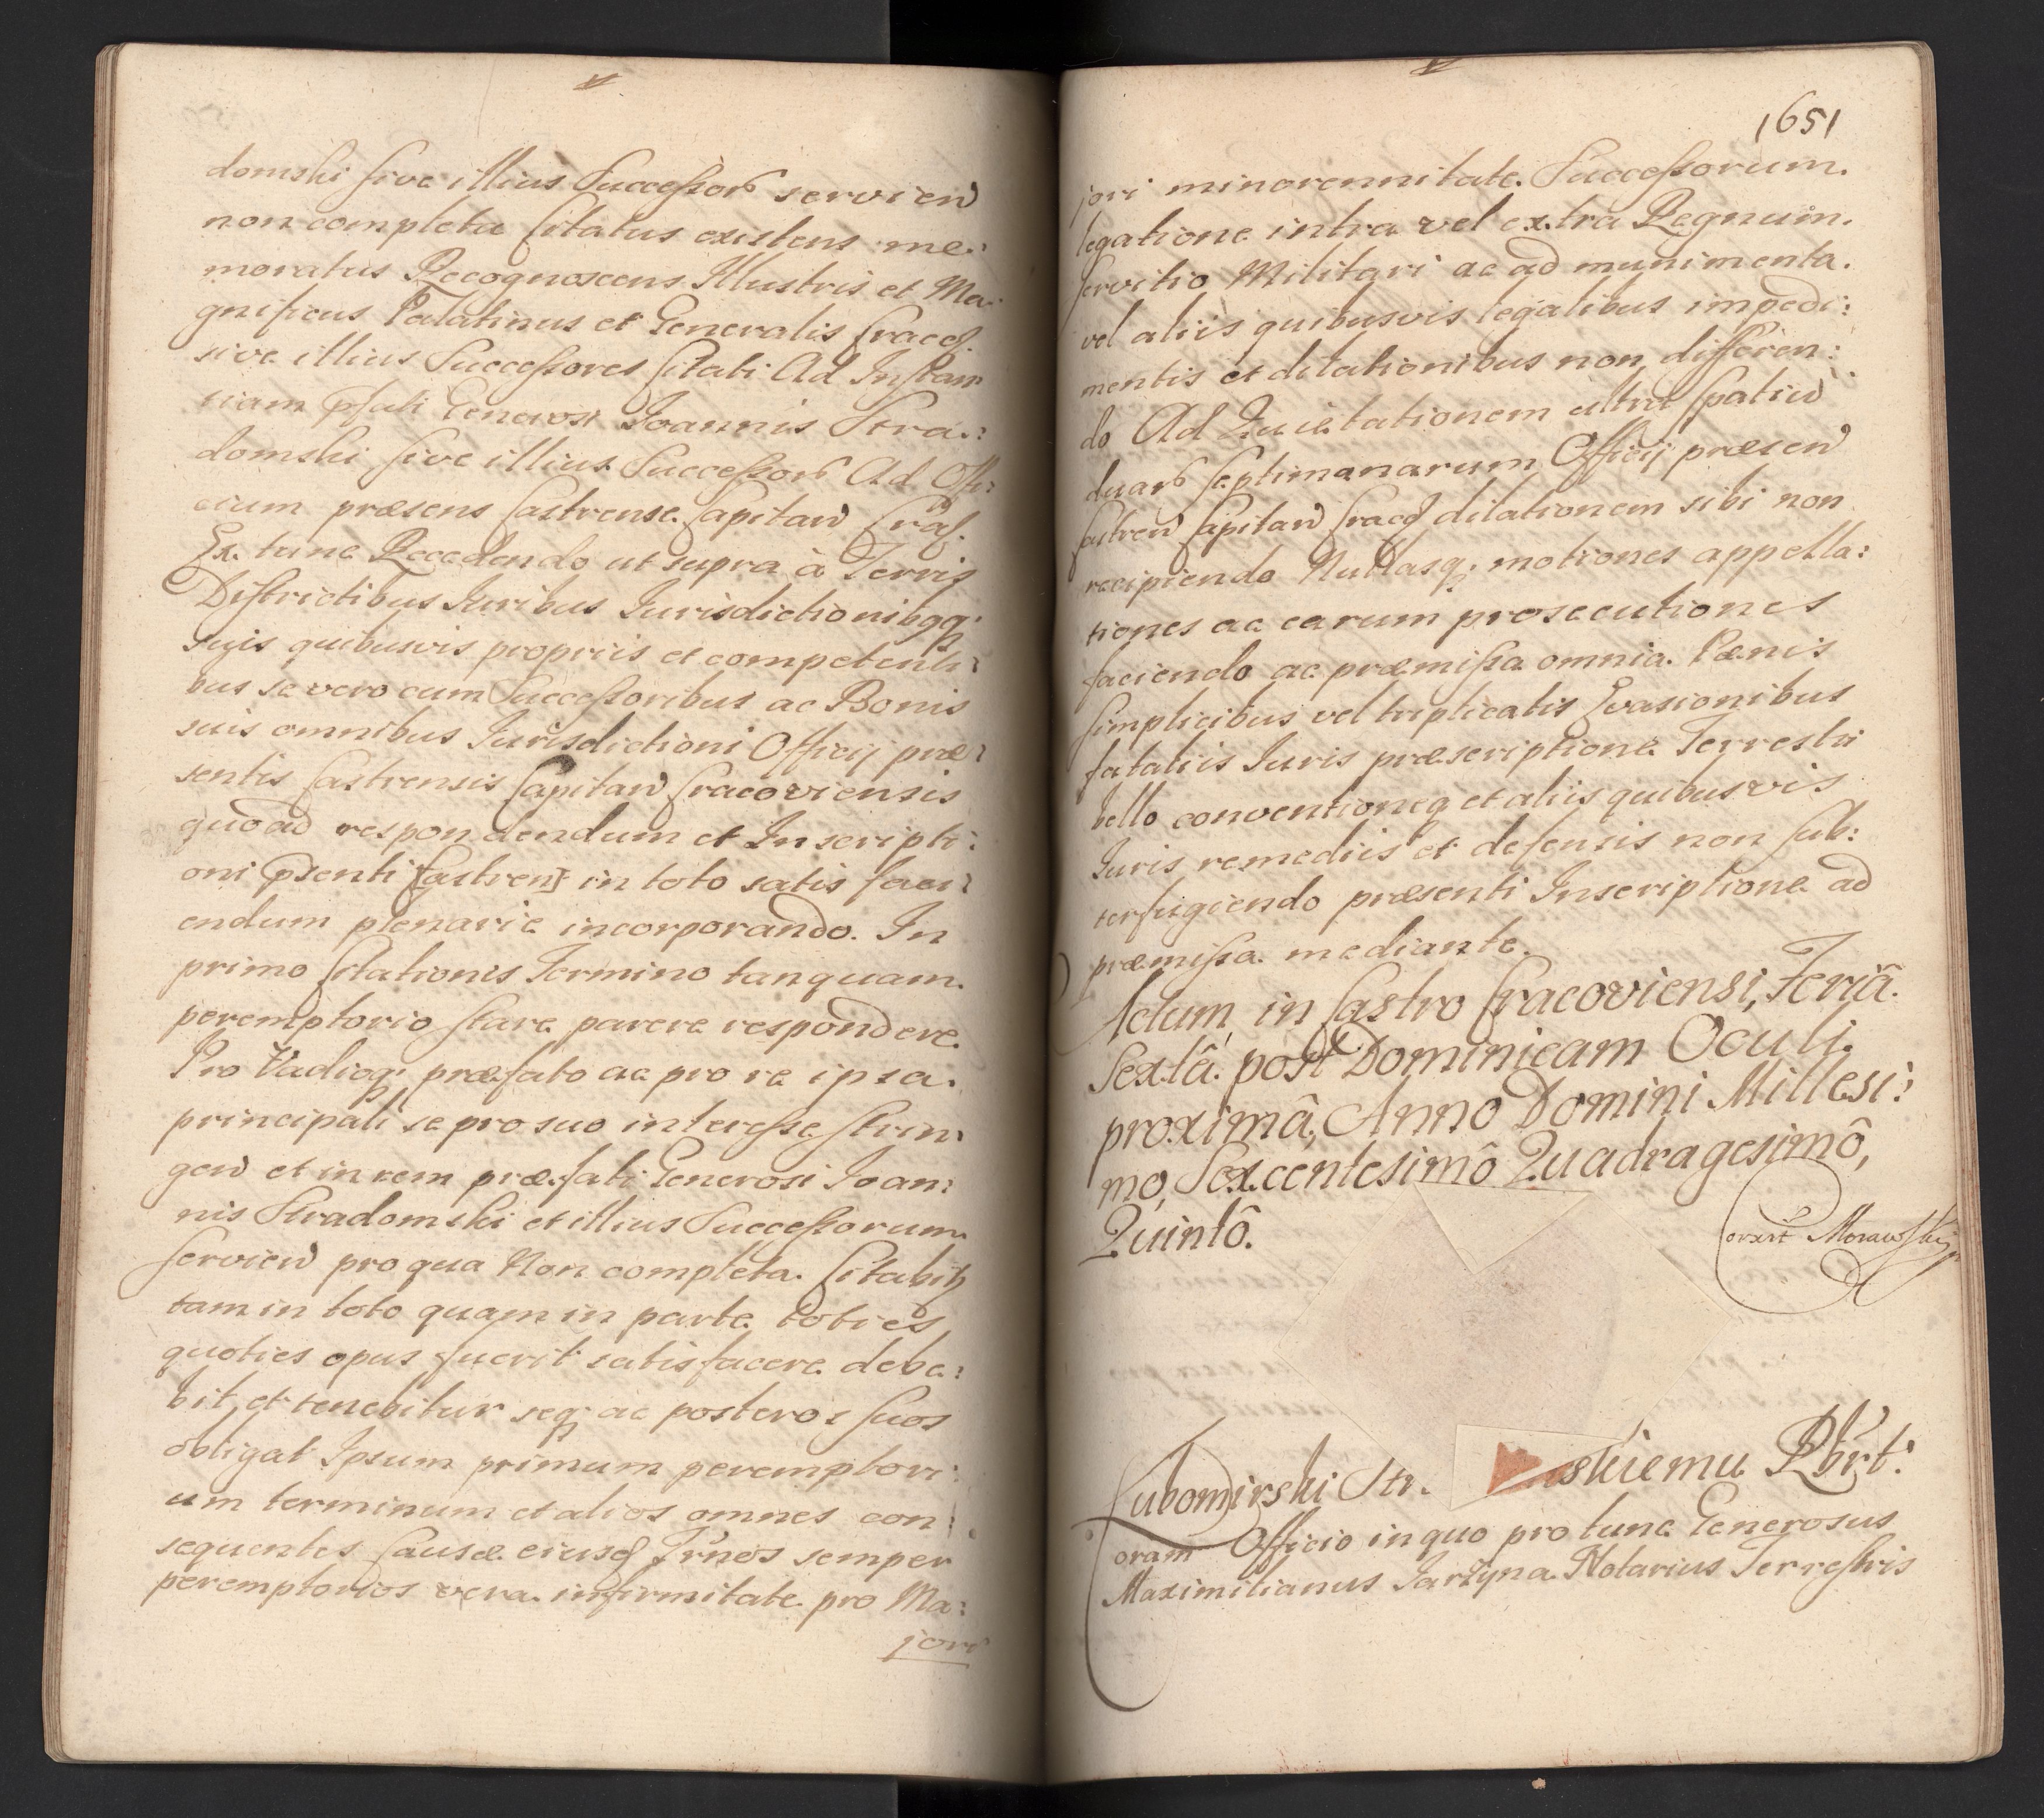 domski sive illius Successorũ servieñ
non completa Citatus existens me:
moratus Recognoscens Illustris et Ma:
gnificus Palatinus et Generalis Cracoῦ.
sive illius Successores Citati Ad Instan
tiam pfati Generosi Joannis Stra:
domski sive illius Successorũ Ad Offi:
cium præsens Castrense Capitan̄ Cra
Ex tunc Recedendo ut supra à Terris
Districtibus Iuribus Iurisdictionibqq;
suis quibusvis propriis et competenti:
bus se vero cum Successoribus ac Bonis
suis omnibus Iurisdictioni Officij præ:
sentis Castrensis Capitan̄ Cracoviensis
quoad respondendum et Inscripti:
oni psenti Castren in toto satis faci:
endum plenarie incorporando. In
primo Citationis Termino tanquam
peremptorio stare parere respondere
Pro Vadioq; præfato ac pro re ipsa
principali se pro suo interesse strin:
gen̄ et in rem præfati Generosi Joan:
nis Stradomski et illius Successorum
servien̄ pro qua Non completa Citabitr
tam in toto quam in parte toties
quoties opus fuerit satisfacere debe:
bit et tenebitur seq; ac posteros suos
obligat Ipsum primum peremptori:
um terminum et alios omnes con:
sequentes Causæ eiusd Trnos semper
peremptorios vera infirmitate pro Ma:
jori
1651
jori minorennitate Successorum
legatione intra vel extra Regnum
servitio Militari ac ad munimenta
vel aliis quibusvis legalibus impedi:
mentis et dilationibus non differen:
do Ad Quietationem ultra spatiũ
duarũ septimanarum Officij præsen̄
Castren̄ Capitan̄ Cracoῦ dilationem sibi non
recipiendo Nullasq; motiones appella:
tiones ac earum prosecutiones
faciendo ac præmissa omnia Pænis
simplicibus vel triplicatis Evasionibus
fataliis Iuris præscriptione Terrestri
bello conventioneq et aliis quibusvis
Iuris remediis et defensis non sub:
terfugiendo præsenti Inscriptione ad
præmissa mediante.
Actum in Castro Cracoviensi, Feriâ
Sextâ post Dominicam Oculi
proximâ, Anno Domini Millesi:
mo, Sexcentesimô Quadragesimô,
Quintô.
Corexit Morawski
Lubomirski Str. skiemu Rbrt:
Coram Officio in quo pro tunc Generosus
Maximilianus Jarzyna Notarius Terrestris